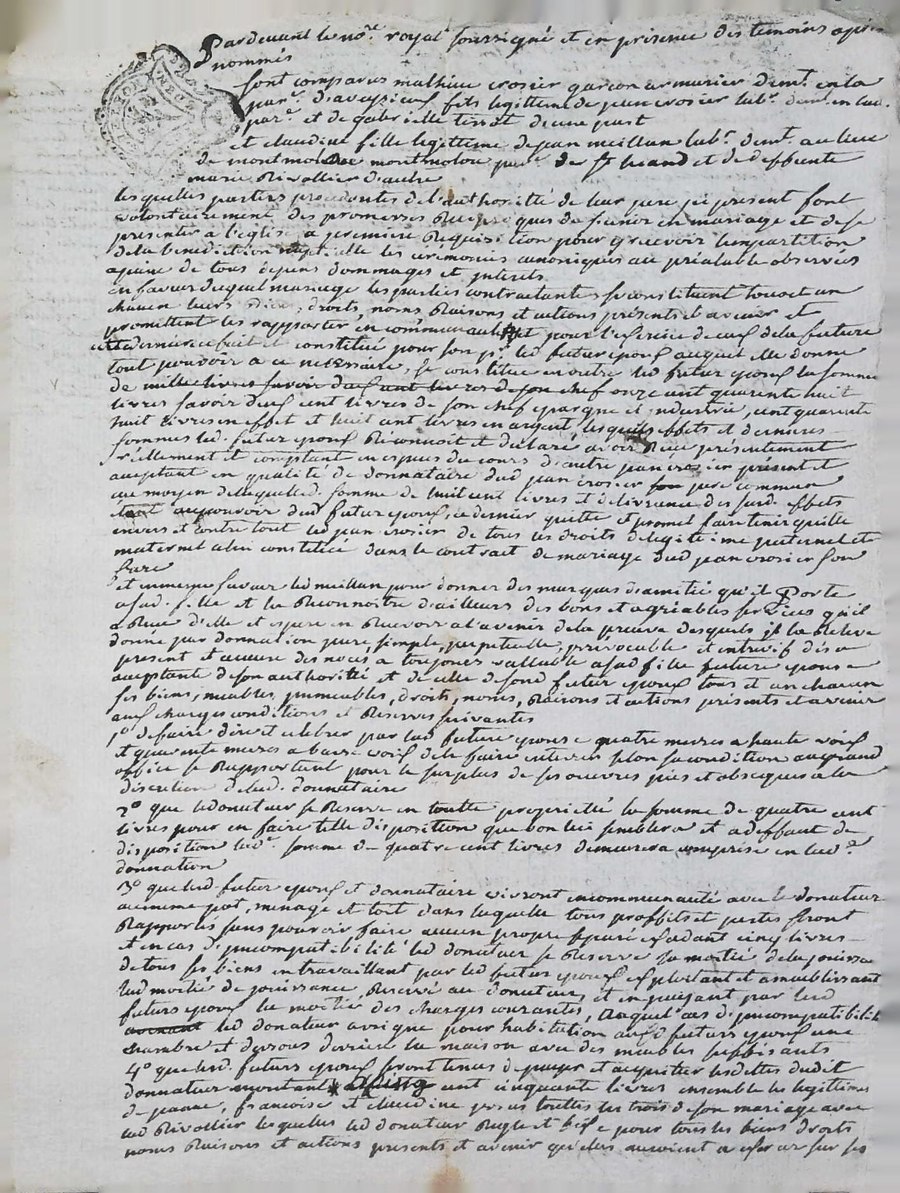 Pardevant le no.re royal soussigné et en présence des temoins après
nommés
sont comparus mathieu crosier garçon armurier dem.t en la
par.e d'aveizieu fils legittime de jean crosier lab.r dem.t en lad.
par.e et de gabrielle tivet d'une part
et claudine fille legittime de jean meillan lab.r dem.t au lieu
de montmolou par.e de st heand et de deffunte
marie Rivollier d'autre
lesquelles parties procedantes de l'authoritté de leur pere icy present font
volontairement des promesses Reciproques de s'unir en mariage et de se
presenter a l'eglise a premiere Requisition pour y recevoir l'impartition
de la benediction nuptialle les ceremonies canoniques au préalable observées
a peine de tous depens dommages et interets
en faveur duquel mariage les parties contractantes se constituent tous et un
chacun leurs biens, droits, noms Raisons et actions présents et avenir et
promettent les rapporter en commun pour l'effet de ceux de la future
cette derniere a fait et constitué pour son p.r led futur epoux auquel elle donne
tout pouvoir a ce necessaire, se constitue en outre led futur epoux la somme
de mille livres savoir deux cent livres de son chef onze cent quarente huit
livres savoir deux cent livres de son chef epargne et industrie, cent quarente
huit livres en effet et huit cent livres en argent, lesquels effets et dernieres
sommes led. futur epoux Reconnoit et declare avoir Reçu présentement
réellement et comptant en especes du cours d'autre jean crosier présent et
acceptant en qualité de donnataire dud jean crosier son pere commun
au moyen de laquelle d. somme de huit cent livres et delivrance des susd. effets
etant au pouvoir dud futur epoux, ce dernier quitte et promet faire tenir quitte
envers et contre tout led jean crosier de tous ses droits de legitime paternel et
maternel a lui constitué dans le contract de mariage dud jean crosier son
frere
et en meme faveur led meillan pour donner des marques d'amitié qu'il Porte
a sad. fille et la Reconnoitre d'ailleurs des bons et agréables services qu'il
a Reçu d'elle et espere en Recevoir a l'avenir de la preuve desquels il la Releve
donne par donnation pure, simple, perpetuelle, irrevocable et entrevif des a
present et a toujours vallable a sad fille future epouse
acceptante de son authorité et de celle de sond futur epoux tous et un chacun
ses biens, meubles, immeubles, droits, noms, Raisons et actions présents et avenir
aux charges conditions et Reserves suivantes
1.o de faire dire et celebrer par lad future epouse quatre messes a haute voix
et quarente messes a basse voix de le faire enterrer selon sa condition au grand
office se Rapportant pour le surplus de ses oeuvres pies et obseques a la
discretion de lad. donnataire
2.o que led donateur se Reserve en toutte proprietté la somme de quatre cent
livres pour en faire telle disposition que bon lui semblera et a deffaut de
disposition lad.e somme de quatre cent livres demeurera comprise en lad.e
donnation
3.o que led. futur epoux et donnataire vivront en communauté avec le donateur
au meme pot, menage et toit dans laquelle tous proffits et pertes seront
Rapportés sans pouvoir faire aucun propre séparé excedant cinq livres
et en cas d'incompatibilité led donateur se Reserve la moitié de la jouissance
de tous ses biens en travaillant par led futurs epoux exploitant et ameublissant
lad moitié de jouissance Reservé au donateur, et en payant par led
futurs epoux la moitié des charges courantes, auquel cas d'incompatibilité
avenant led donateur assigne pour habitation auxd futurs epoux une
chambre et dessous derriere la maison avec des meubles suffisants
4.o que led. futurs epoux seront tenus de payer et acquitter les dettes dudit
donnateur montant cent cinquante livres ensemble les legittimes
de jeanne, francoise et claudine ses soeurs touttes les trois de son mariage avec
lad Rivollier lesquelles led donateur Regle et fixe pour tous les biens droits
noms Raisons et actions presents et avenir qu'elles auroient a esperer sur ses